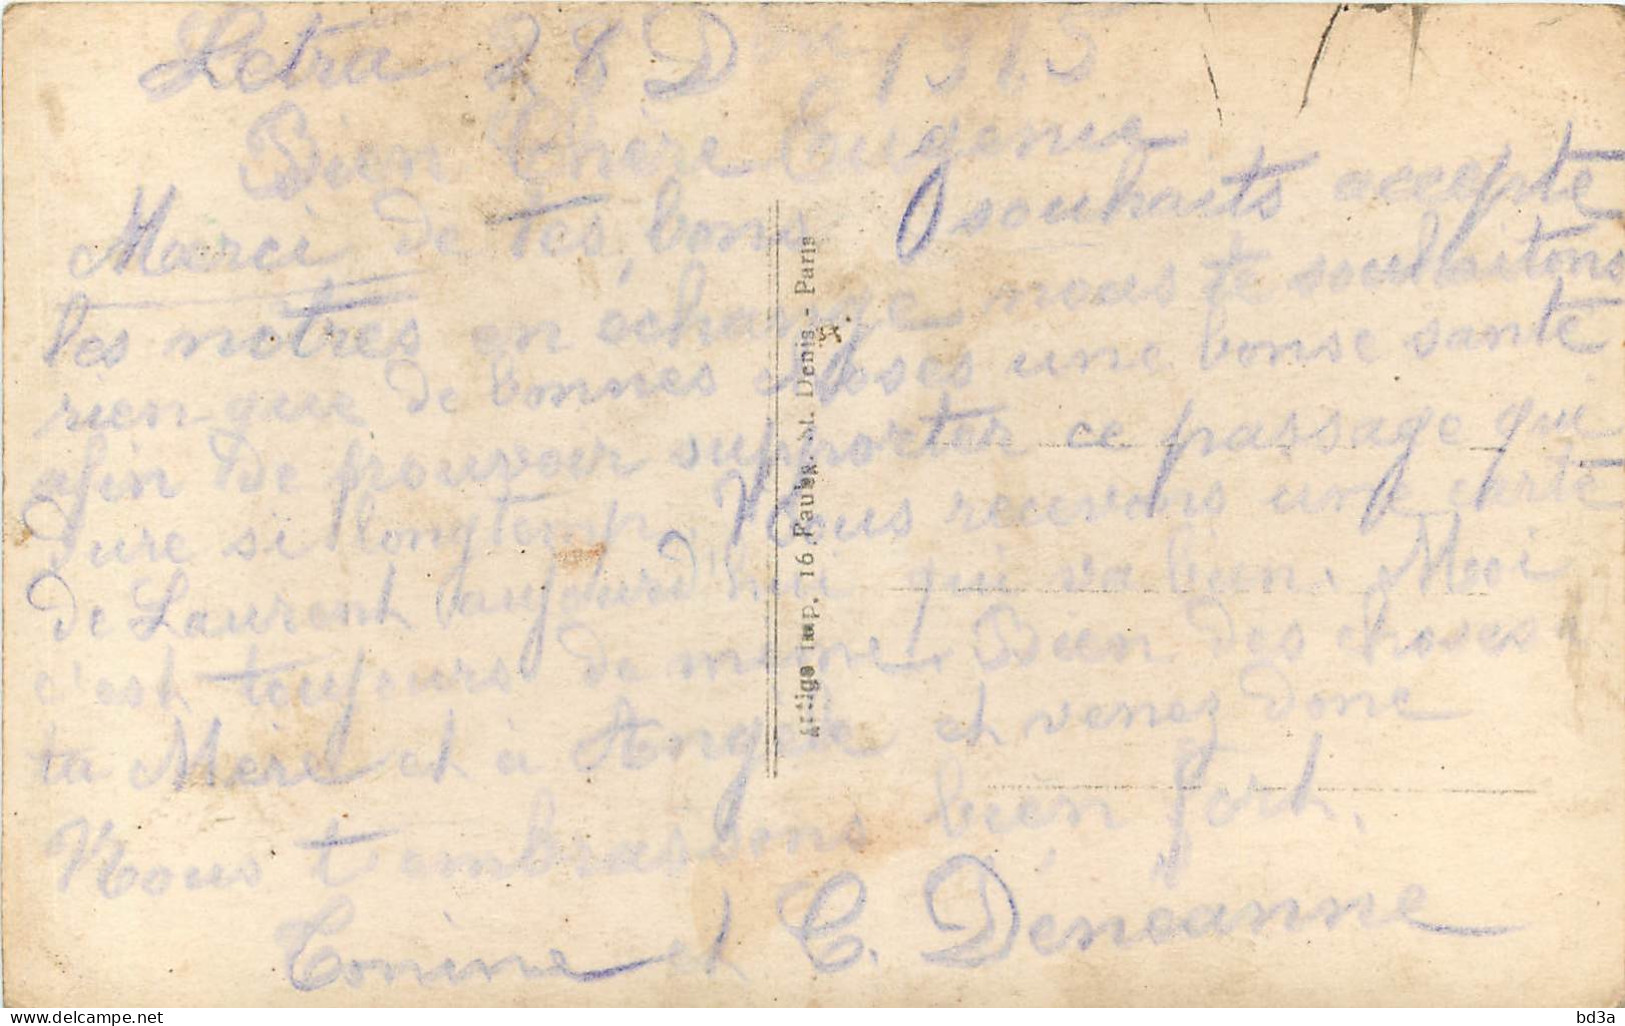 Letra 28 Dbre 1915
Bien Chère Eugenie
Merci de tes bons souhaits accepte
les notres en échange nous te souhaitons
rien que de bonnes choses une bonse santé
afin de prouvoir supporter ce passage qui
dure si longtemp. Nous recevons une carte
de Laurent aujourd'hui qui va bien. Moi
c'est toujours de même. Bien des choses
ta Mère et à Angèle et venez donc
Nous t'embrassons bien fort.
Tonine et C. Dénéanne
Artige Imp. 16, Faub. St. Denis - Paris
bd3a